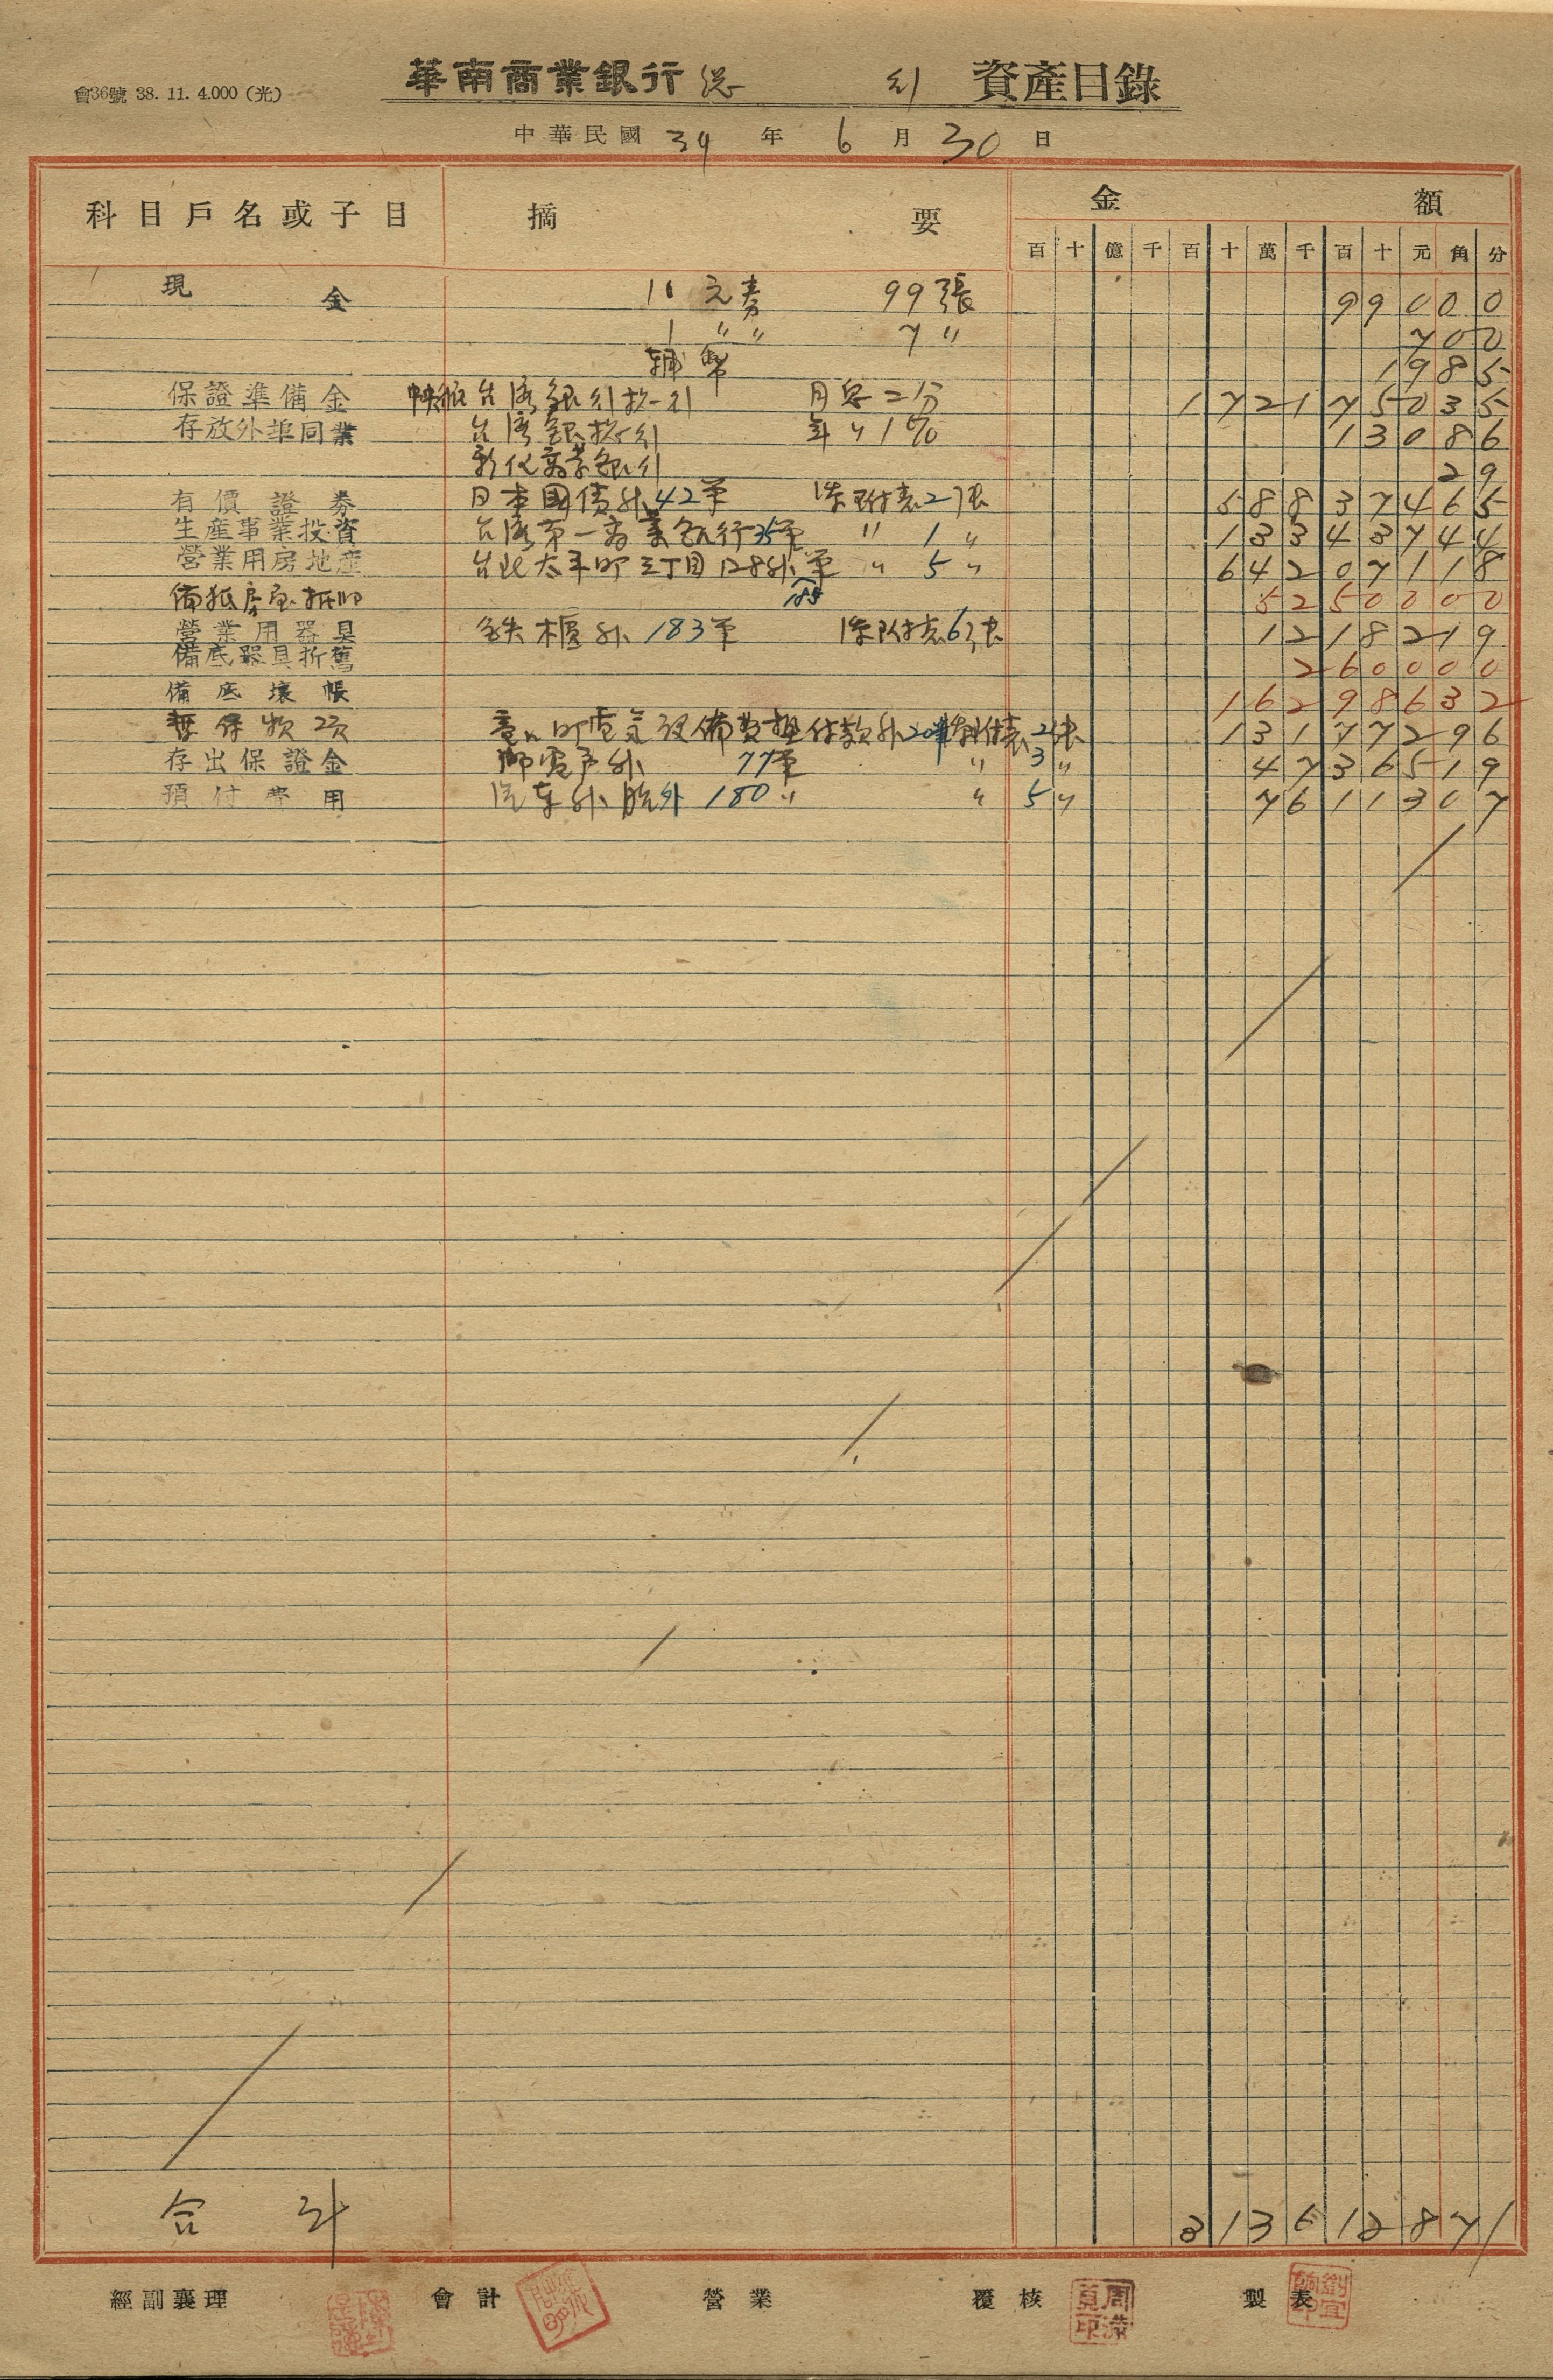 會36號 38. 11. 4.000 (光)
華南商業銀行 總 行 資產目錄
中華民國 39 年 6 月 30 日
科目戶名或子目 摘 要 金 額
百 十 億 千 百 十 萬 千 百 十 元 角 分
現 金 10 元券 99張 99000
1 〃 〃 7 〃 700
輔幣 1985
保證準備金 台湾銀行 月息二分 172175035
存放外埠同業 台湾銀行 年〃1% 13086
彰化商業銀行 29
有價證券 日本國債外42筆 附表2張 58837465
生產事業投資 台湾第一商業銀行35筆 〃 1 〃 13343744
營業用房地產 台北太平町三丁目128外筆 〃 5 〃 64207118
備抵房屋折旧 5250000
營業用器具 鉄櫃外 183筆 附表6張 1218219
備底器具折舊 260000
備底壞帳 16298632
暫付款項 町電気設備費 付款外20筆 附表2張 13177296
存出保證金 外 77筆 〃 3 〃 4736519
預付費用 汽車外 外 180 〃 〃 5 〃 7611307
合 計 313612871
經副襄理 會計 營業 覆核 製表